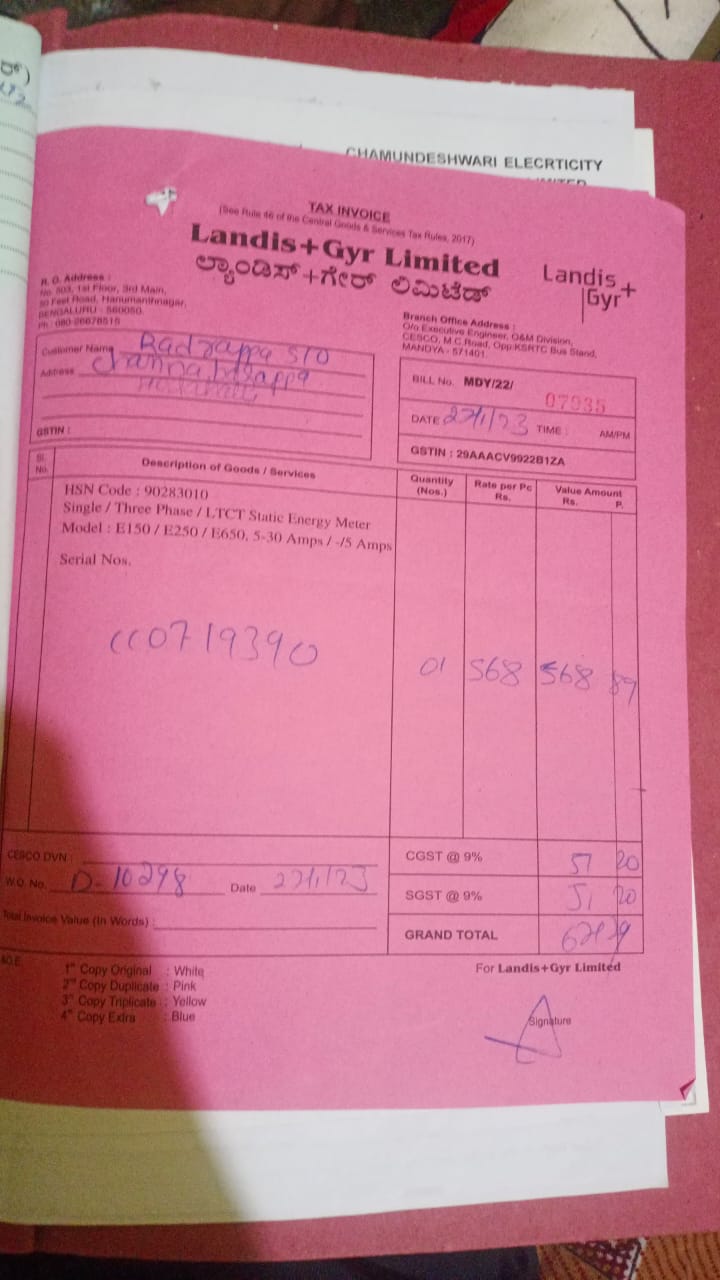 CHAMUNDESHWARI ELECRTICITY
TAX INVOICE
(See Rule 46 of the Central Goods & Services Tax Rules, 2017)
Landis+Gyr Limited
ಲ್ಯಾಂಡಿಸ್+ಗೇರ್ ಲಿಮಿಟೆಡ್
Landis+
Gyr
R. O. Address :
No. 503, 1st Floor, 3rd Main,
50 Feet Road, Hanumanthnagar,
BENGALURU - 560050.
Ph : 080-26678515
Branch Office Address :
O/o Executive Engineer, O&M Division,
CESCO, M.C.Road, Opp.KSRTC Bus Stand,
MANDYA - 571401.
Customer Name S/O
Address
GSTIN :
BILL No. MDY/22/ 07935
DATE 27/1/23 TIME : AM/PM
GSTIN : 29AAACV9922B1ZA
Sl. No. Description of Goods / Services Quantity (Nos.) Rate per Pc Rs. Value Amount Rs. P.
HSN Code : 90283010
Single / Three Phase / LTCT Static Energy Meter
Model : E150 / E250 / E650, 5-30 Amps / -/5 Amps
Serial Nos.
CC0719390 01 568 568 89
CESCO DVN :
CGST @ 9% 51 20
W.O. No. D-10298 Date 27/1/23
SGST @ 9% 51 20
Total Invoice Value (In Words) :
GRAND TOTAL
1st Copy Original : White
2nd Copy Duplicate : Pink
3rd Copy Triplicate : Yellow
4th Copy Extra : Blue
For Landis+Gyr Limited
Signature